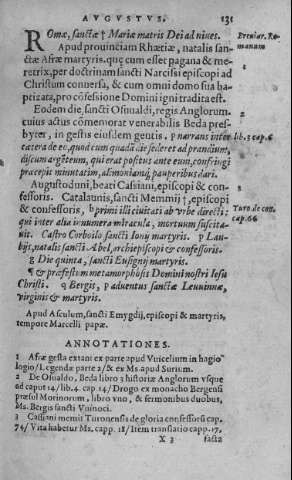 AVGVSTVS. 131
ROmæ, sanctæ † Mariæ matris Dei ad niues. Breuiar. Ro-
Apud prouinciam Rhætiæ, natalis san- manum
ctæ Afræ martyris, quę cum esset pagana & me-
retrix, per doctrinam sancti Narcissi episcopi ad
Christum conuersa, & cum omni domo sua ba-
ptizata, pro cōfessione Domini igni tradita est.
Eodem die, sancti Osuualdi, regis Anglorum,
cuius actus cōmemorat venerabilis Beda pres-
byter, in gestis eiusdem gentis. p narrans inter lib. 3. cap. 6
cætera de eo, quod cum quadā die sederet ad prandium,
discum argēteum, qui erat positus ante eum, confringi
præcepit minutatim, alimoniamq́; pauperibus dari.
Augustoduni, beati Cassiani, episcopi & con-
fessoris. Catalaunis, sancti Memmij †, episcopi
& confessoris, b primi illi ciuitati ab vrbe directi: Turo de con.
qui inter alia innumera miracula, mortuum suscita- cap. 66
uit. Castro Corboilo sancti Ionij martyris. p Lau-
bijs, natalis sancti Abel, archiepiscopi & confessoris.
g Die quinta, sancti Eusignij martyris.
¶ & præfestum metamorphosis Domini nostri Iesu
Christi. q Bergis, p aduentus sanctæ Leuuinnæ,
virginis & martyris.
Apud Asculum, sancti Emygdij, episcopi & martyris,
tempore Marcelli papæ.
ANNOTATIONES.
1 Afræ gesta extant ex parte apud Vuicelium in hagio
logio/ Legendæ parte 2/ & ex Ms. apud Surium.
2 De Osualdo, Beda libro 3 historiæ Anglorum vsque
ad caput 14/ lib. 4. cap 14/ Drogo ex monacho Bergensi
præsul Morinorum, libro vno, & sermonibus duobus,
Ms. Bergis sancti Vuinoci.
3 Cassiani meminit Turonensis de gloria confessorū cap.
74/ Vita habetur Ms. capp. 18/ Item translatio capp. 17,
X 3 facta